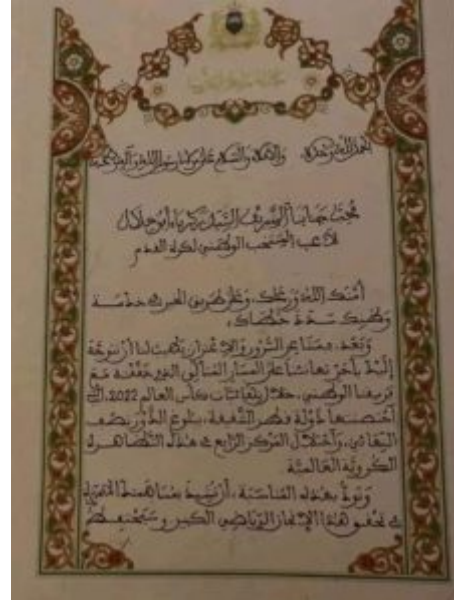 الحمد لله وحده، والصلاة والسلام على مولانا رسول الله وآله وصحبه
محبنا جنابنا الشريف السيد زكرياء أبو خلال
لاعب المنتخب الوطني لكرة القدم
أمنك الله ورعاك، وعلى طريق الخير خدمة
وطنك سدد خطاك،
وبعد، فمشاعر السرور والاعتزاز يطيب لنا أن نتوجه
إليك بأحر تهانئنا على المسار المثالي الذي حققته مع
فريقنا الوطني، خلال نهائيات كأس العالم 2022، التي
احتضنتها دولة قطر الشقيقة، ببلوغ الدور نصف
النهائي، واحتلال المركز الرابع في هذه التظاهرة
الكروية العالمية.
ونود بهذه المناسبة، أن نشيد بمساهمتك
في تحقيق هذا الإنجاز الرياضي الكبير و